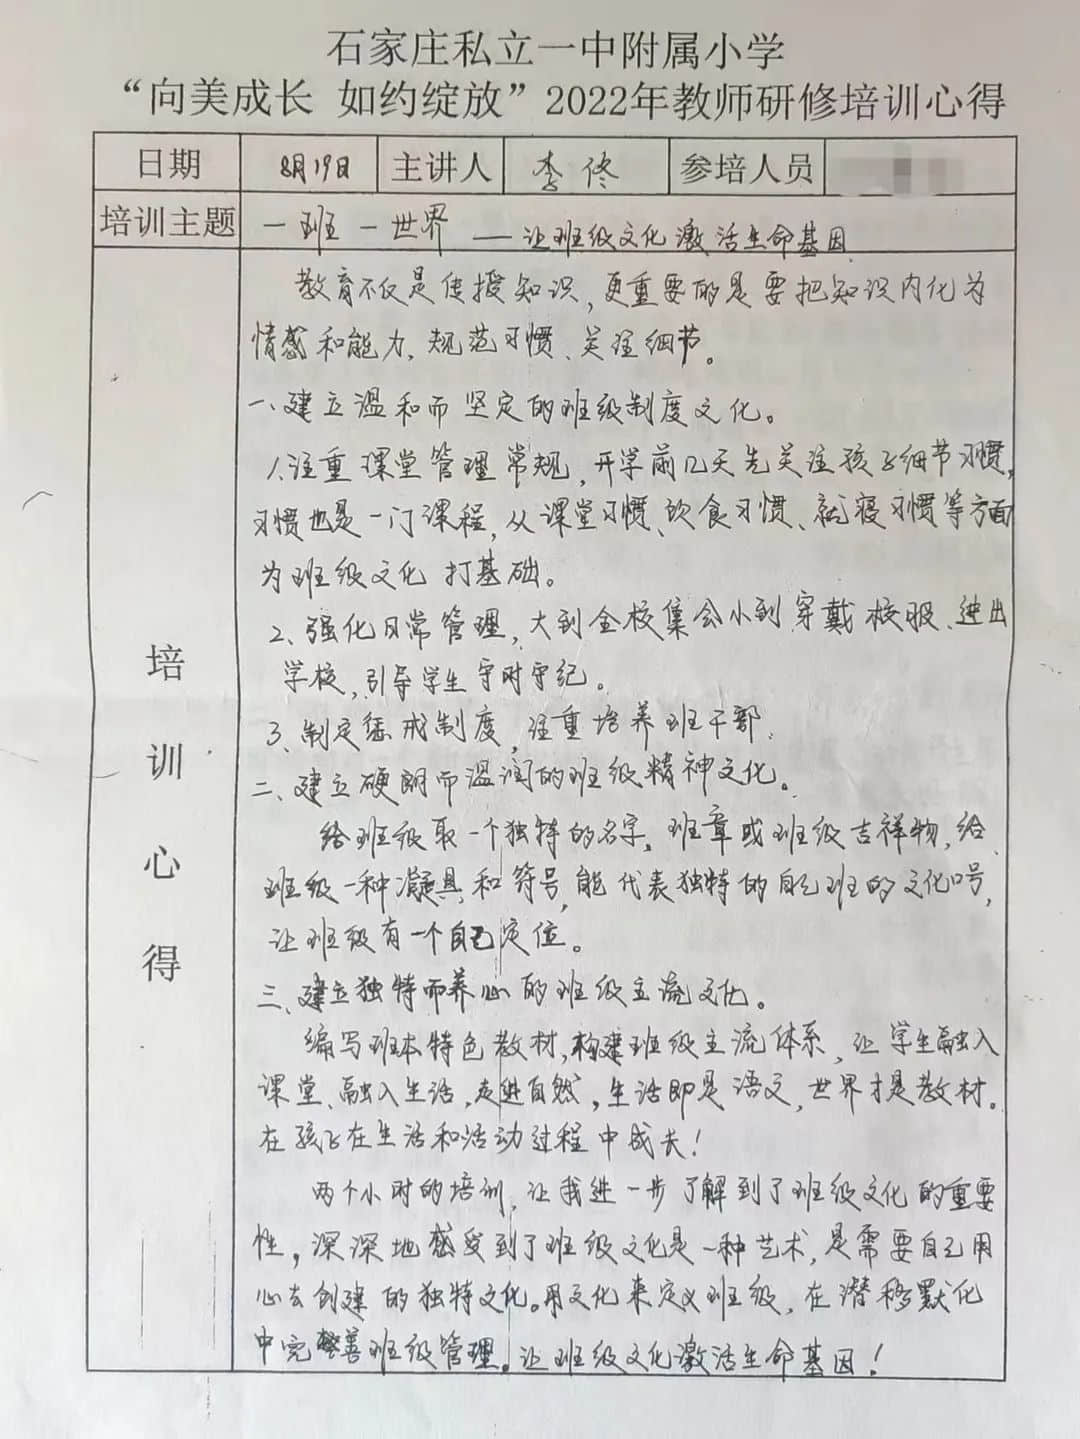 石家庄私立一中附属小学
“向美成长 如约绽放”2022年教师研修培训心得
日期 8月19日 主讲人 李佟 参培人员
培训主题 一班一世界 ——让班级文化激活生命基因
培训心得
教育不仅是传授知识，更重要的是要把知识内化为
情感和能力、规范习惯、关注细节。
一、建立温和而坚定的班级制度文化。
1.注重课堂管理常规，开学前几天先关注孩子细节习惯，
习惯也是一门课程，从课堂习惯、饮食习惯、就寝习惯等方面
为班级文化打基础。
2、强化日常管理，大到全校集会小到穿戴校服、进出
学校，引导学生守时守纪。
3、制定惩戒制度，注重培养班干部。
二、建立硬朗而温润的班级精神文化。
给班级取一个独特的名字，班章或班级吉祥物，给
班级一种凝具和符号，能代表独特的自己班的文化口号，
让班级有一个自己定位。
三、建立独特而养心的班级主流文化。
编写班本特色教材，构建班级主流体系，让学生融入
课堂、融入生活，走进自然，生活即是语文，世界才是教材。
在孩子在生活和活动过程中成长！
两个小时的培训，让我进一步了解到了班级文化的重要
性，深深地感受到了班级文化是一种艺术，是需要自己用
心去创建的独特文化。用文化来定义班级，在潜移默化
中完善班级管理。让班级文化激活生命基因！